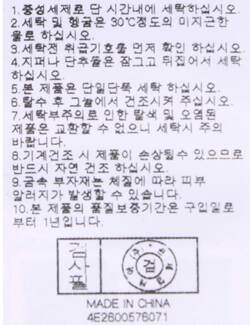 1.중성세제로 단 시간내에 세탁하십시오.
2.세탁 및 헹굼은 30℃정도의 미지근한
물로 하십시오.
3.세탁전 취급기호를 먼저 확인 하십시오.
4.지퍼나 단추등은 잠그고 뒤집어서 세탁
하십시오.
5.본 제품은 단일단독 세탁 하십시오.
6.탈수 후 그늘에서 건조시켜 주십시오.
7.세탁부주의로 인한 탈색 및 오염된
제품은 교환할 수 없으니 세탁시 주의
바랍니다.
8.기계건조 시 제품이 손상될수 있으므로
반드시 자연 건조 하십시오.
9.금속 부자재는 체질에 따라 피부
알러지가 발생할 수 있습니다.
10.본 제품의 품질보증기간은 구입일로
부터 1년입니다.
검사품
MADE IN CHINA
4E2600576071